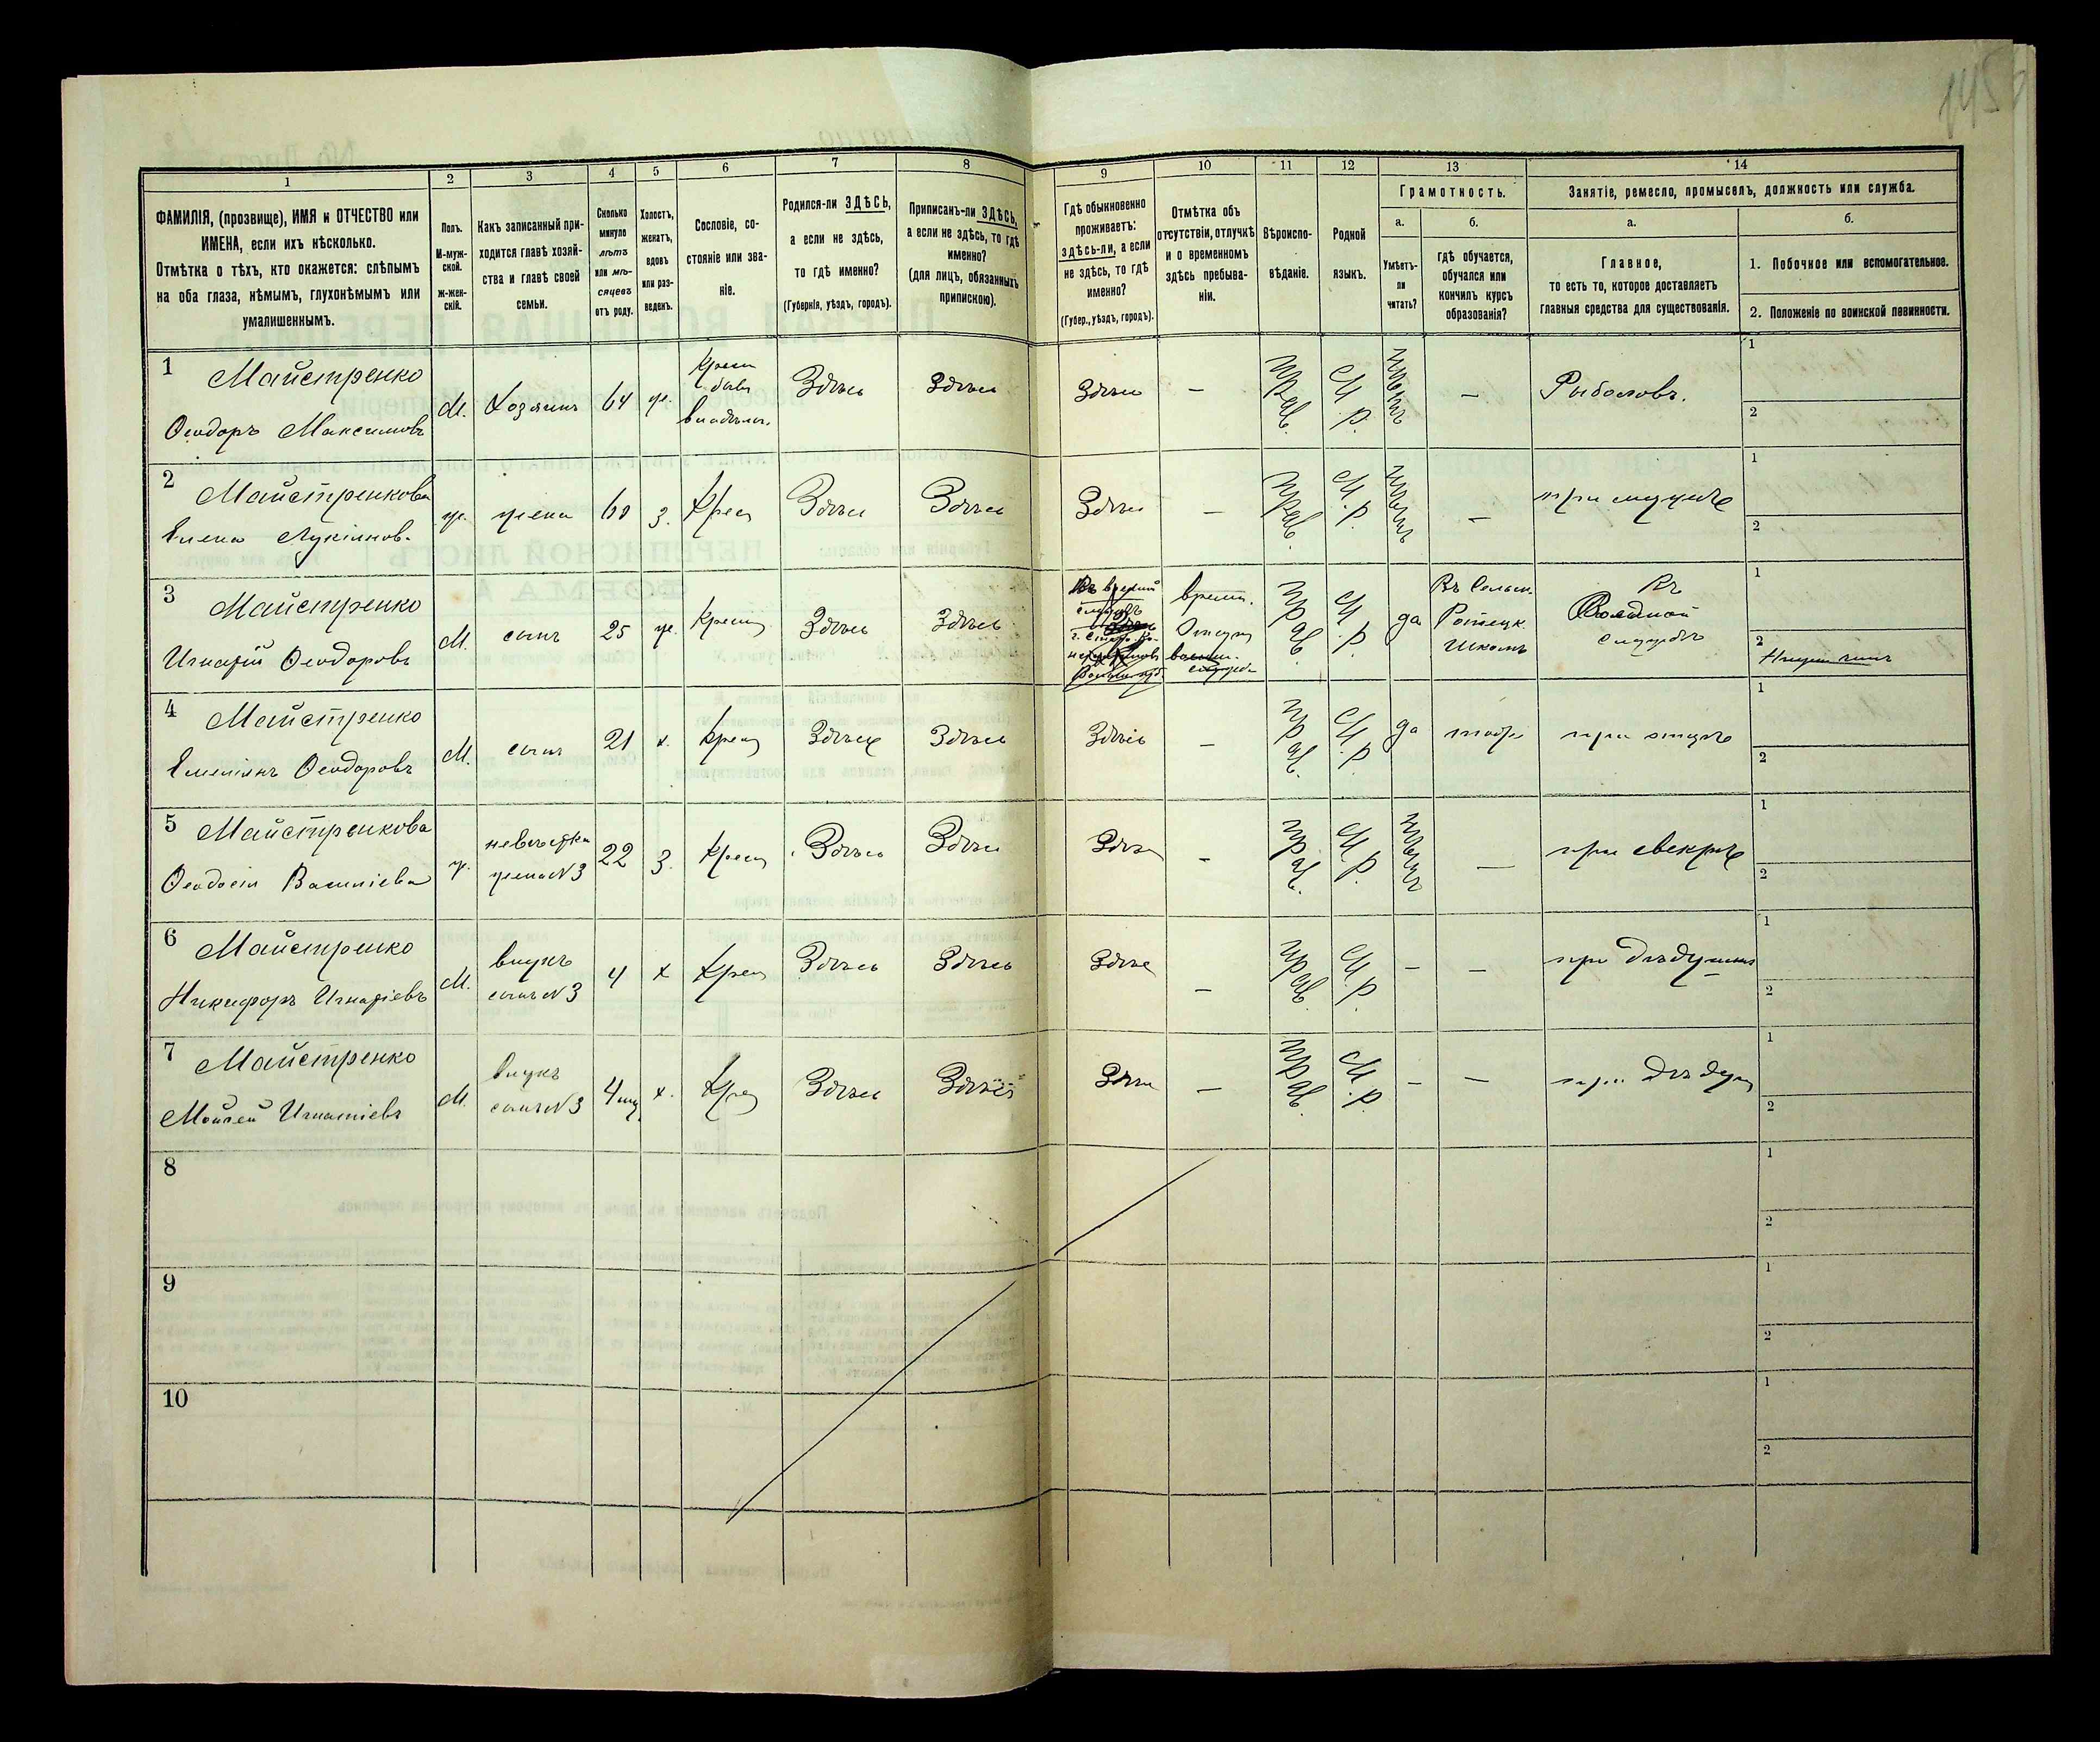 145
1 2 3 4 5 6 7 8 9 10 11 12 13 14
ФАМИЛІЯ, (прозвище), ИМЯ и ОТЧЕСТВО или
ИМЕНА, если ихъ нѣсколько.
Отмѣтка о тѣхъ, кто окажется: слѣпымъ
на оба глаза, нѣмымъ, глухонѣмымъ или
умалишеннымъ.
Полъ.
М-муж-
ской.
Ж-жен-
скій.
Какъ записанный при-
ходится главѣ хозяй-
ства и главѣ своей
семьи.
Сколько
минуло
лѣтъ
или мѣ-
сяцевъ
отъ роду.
Холостъ,
женатъ,
вдовъ
или раз-
веденъ.
Сословіе, со-
стояніе или зва-
ніе.
Родился-ли ЗДѢСЬ,
а если не здѣсь,
то гдѣ именно?
(Губернія, уѣздъ, городъ).
Приписанъ-ли ЗДѢСЬ,
а если не здѣсь, то гдѣ
именно?
(для лицъ, обязанныхъ
припискою).
Гдѣ обыкновенно
проживаетъ:
здѣсь-ли, а если
не здѣсь, то гдѣ
именно?
(Губер., уѣздъ, городъ).
Отмѣтка объ
отсутствіи, отлучкѣ
и о временномъ
здѣсь пребыва-
ніи.
Вѣроиспо-
вѣданіе.
Родной
языкъ.
Грамотность.
а.
Умѣетъ-
ли
читать?
б.
гдѣ обучается,
обучался или
кончилъ курсъ
образованія?
Занятіе, ремесло, промыселъ, должность или служба.
а.
Главное,
то есть то, которое доставляетъ
главныя средства для существованія.
б.
1. Побочное или вспомогательное.
2. Положеніе по воинской повинности.
1 Майстренко
Ѳеодоръ Максимовъ
М. Хозяинъ 64 ж. Крест. Здѣсь Здѣсь Здѣсь — прав. М.р. Рыболовъ.
1
2
2 Майстренкова
Елена Лукіянов.
ж. жена 60 з. Крест Здѣсь Здѣсь Здѣсь — прав. М.р. — при мужѣ
1
2
3 Майстренко
Игнатій Ѳеодоровъ
М. сынъ 25 ж. Крест Здѣсь Здѣсь
прав. М.р. да
школѣ
Въ
Военной
службѣ
1
2
4 Майстренко
Емеліянъ Ѳеодоровъ
М. сынъ 21 х. Крест Здѣсь Здѣсь Здѣсь — прав. М.р. да тоже при отцѣ
1
2
5 Майстренкова
Ѳеодосія Василіева
ж. невѣстка
жена N3
22 з. Крест Здѣсь Здѣсь Здѣсь — прав. М.р. — при свекрѣ
1
2
6 Майстренко
Никифоръ Игнатіевъ
М. внукъ
сынъ N3
4 х Крест Здѣсь Здѣсь Здѣсь — прав. М.р. — — при дѣдушкѣ
1
2
7 Майстренко
Мойсей Игнатіевъ
М. внукъ
сынъ N3
4 х. Крест Здѣсь Здѣсь Здѣсь — прав. М.р. — — при
1
2
8
1
2
9
1
2
10
1
2